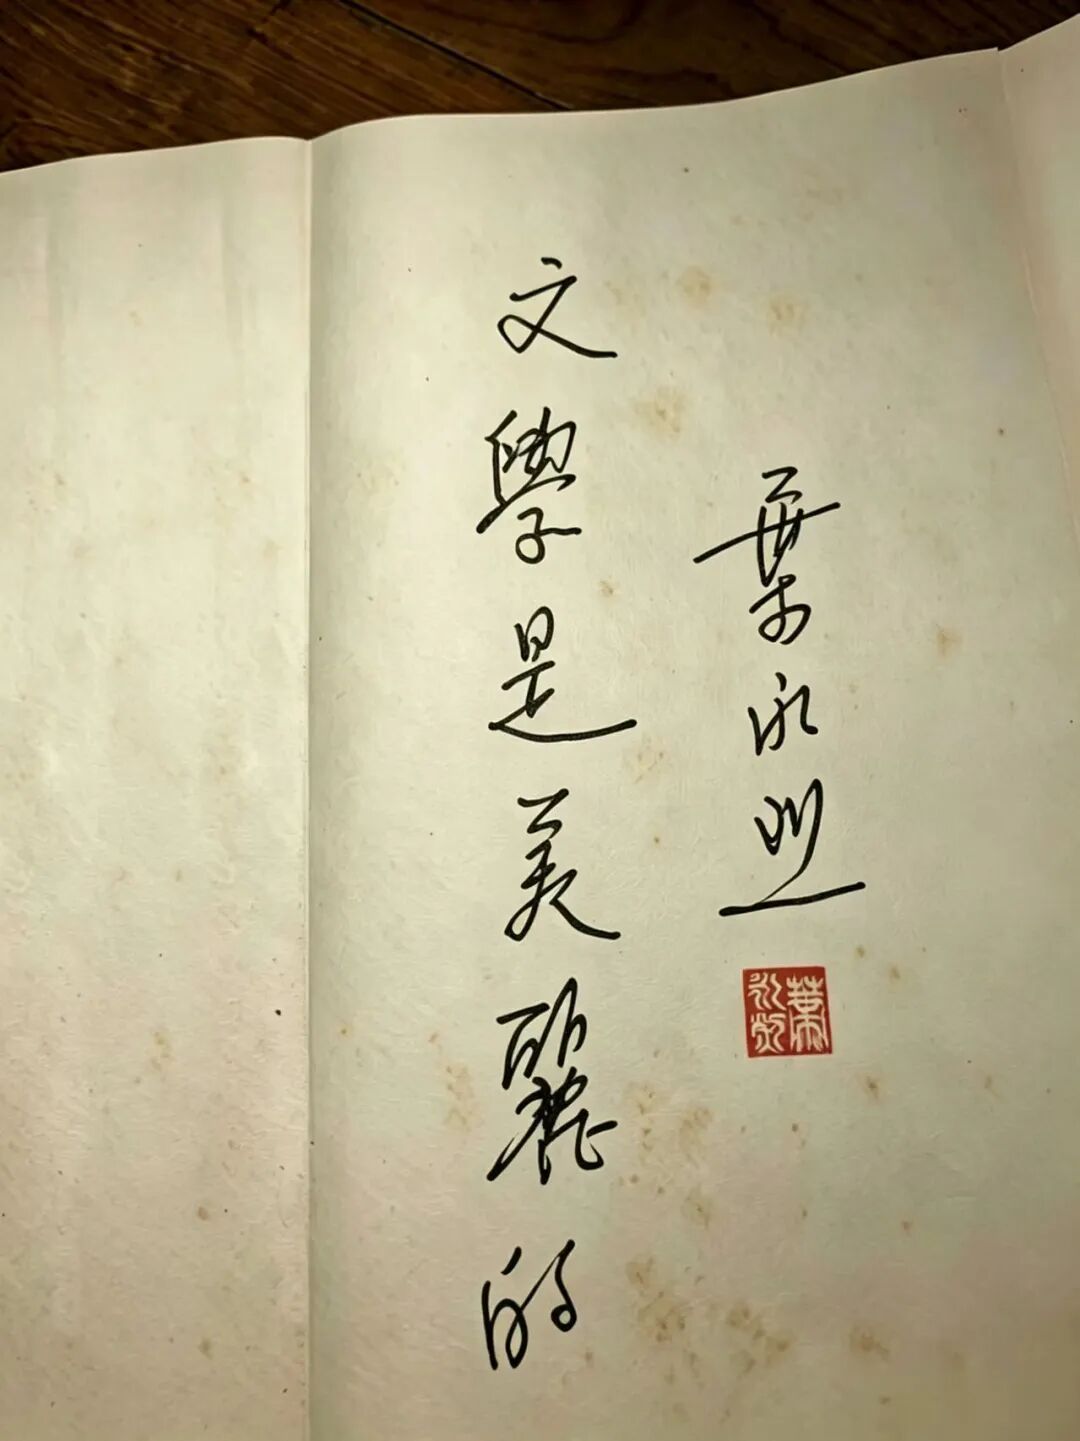 文學是美麗的
葉永烈
葉永烈